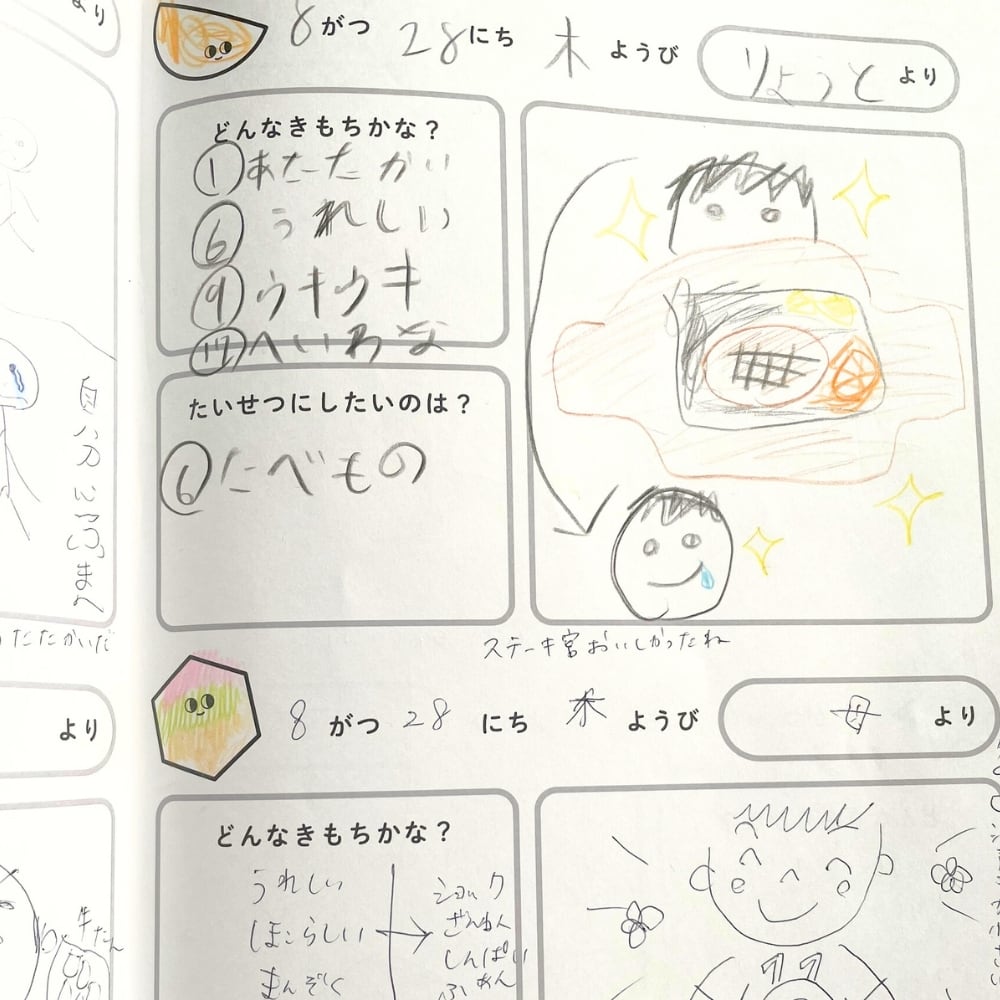 より
8がつ 28にち 木ようび りょうとより
どんなきもちかな？
①あたたかい
⑥うれしい
⑨ウキウキ
⑰へいわな
たいせつにしたいのは？
⑥たべもの
ステーキ宮おいしかったね
たたかいだ
より
8がつ 28にち 木ようび 母より
どんなきもちかな？
うれしい
ほこらしい
まんぞく
ショック
ざんねん
しんぱい
ふあん
牛たん